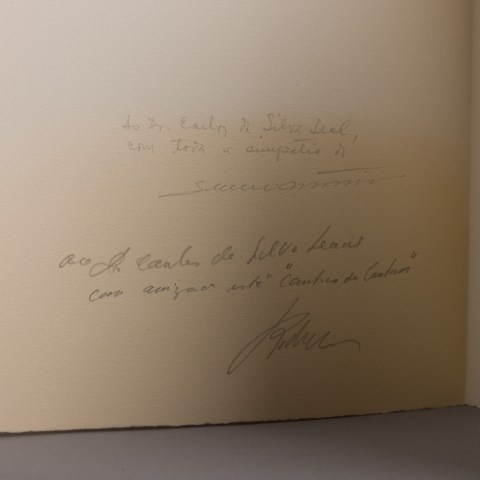 Ao Dr. Carlos da Silva Leal,
com toda a simpatia de
ao Dr. Carlos da Silva
com amizade este "Cantico dos Canticos"